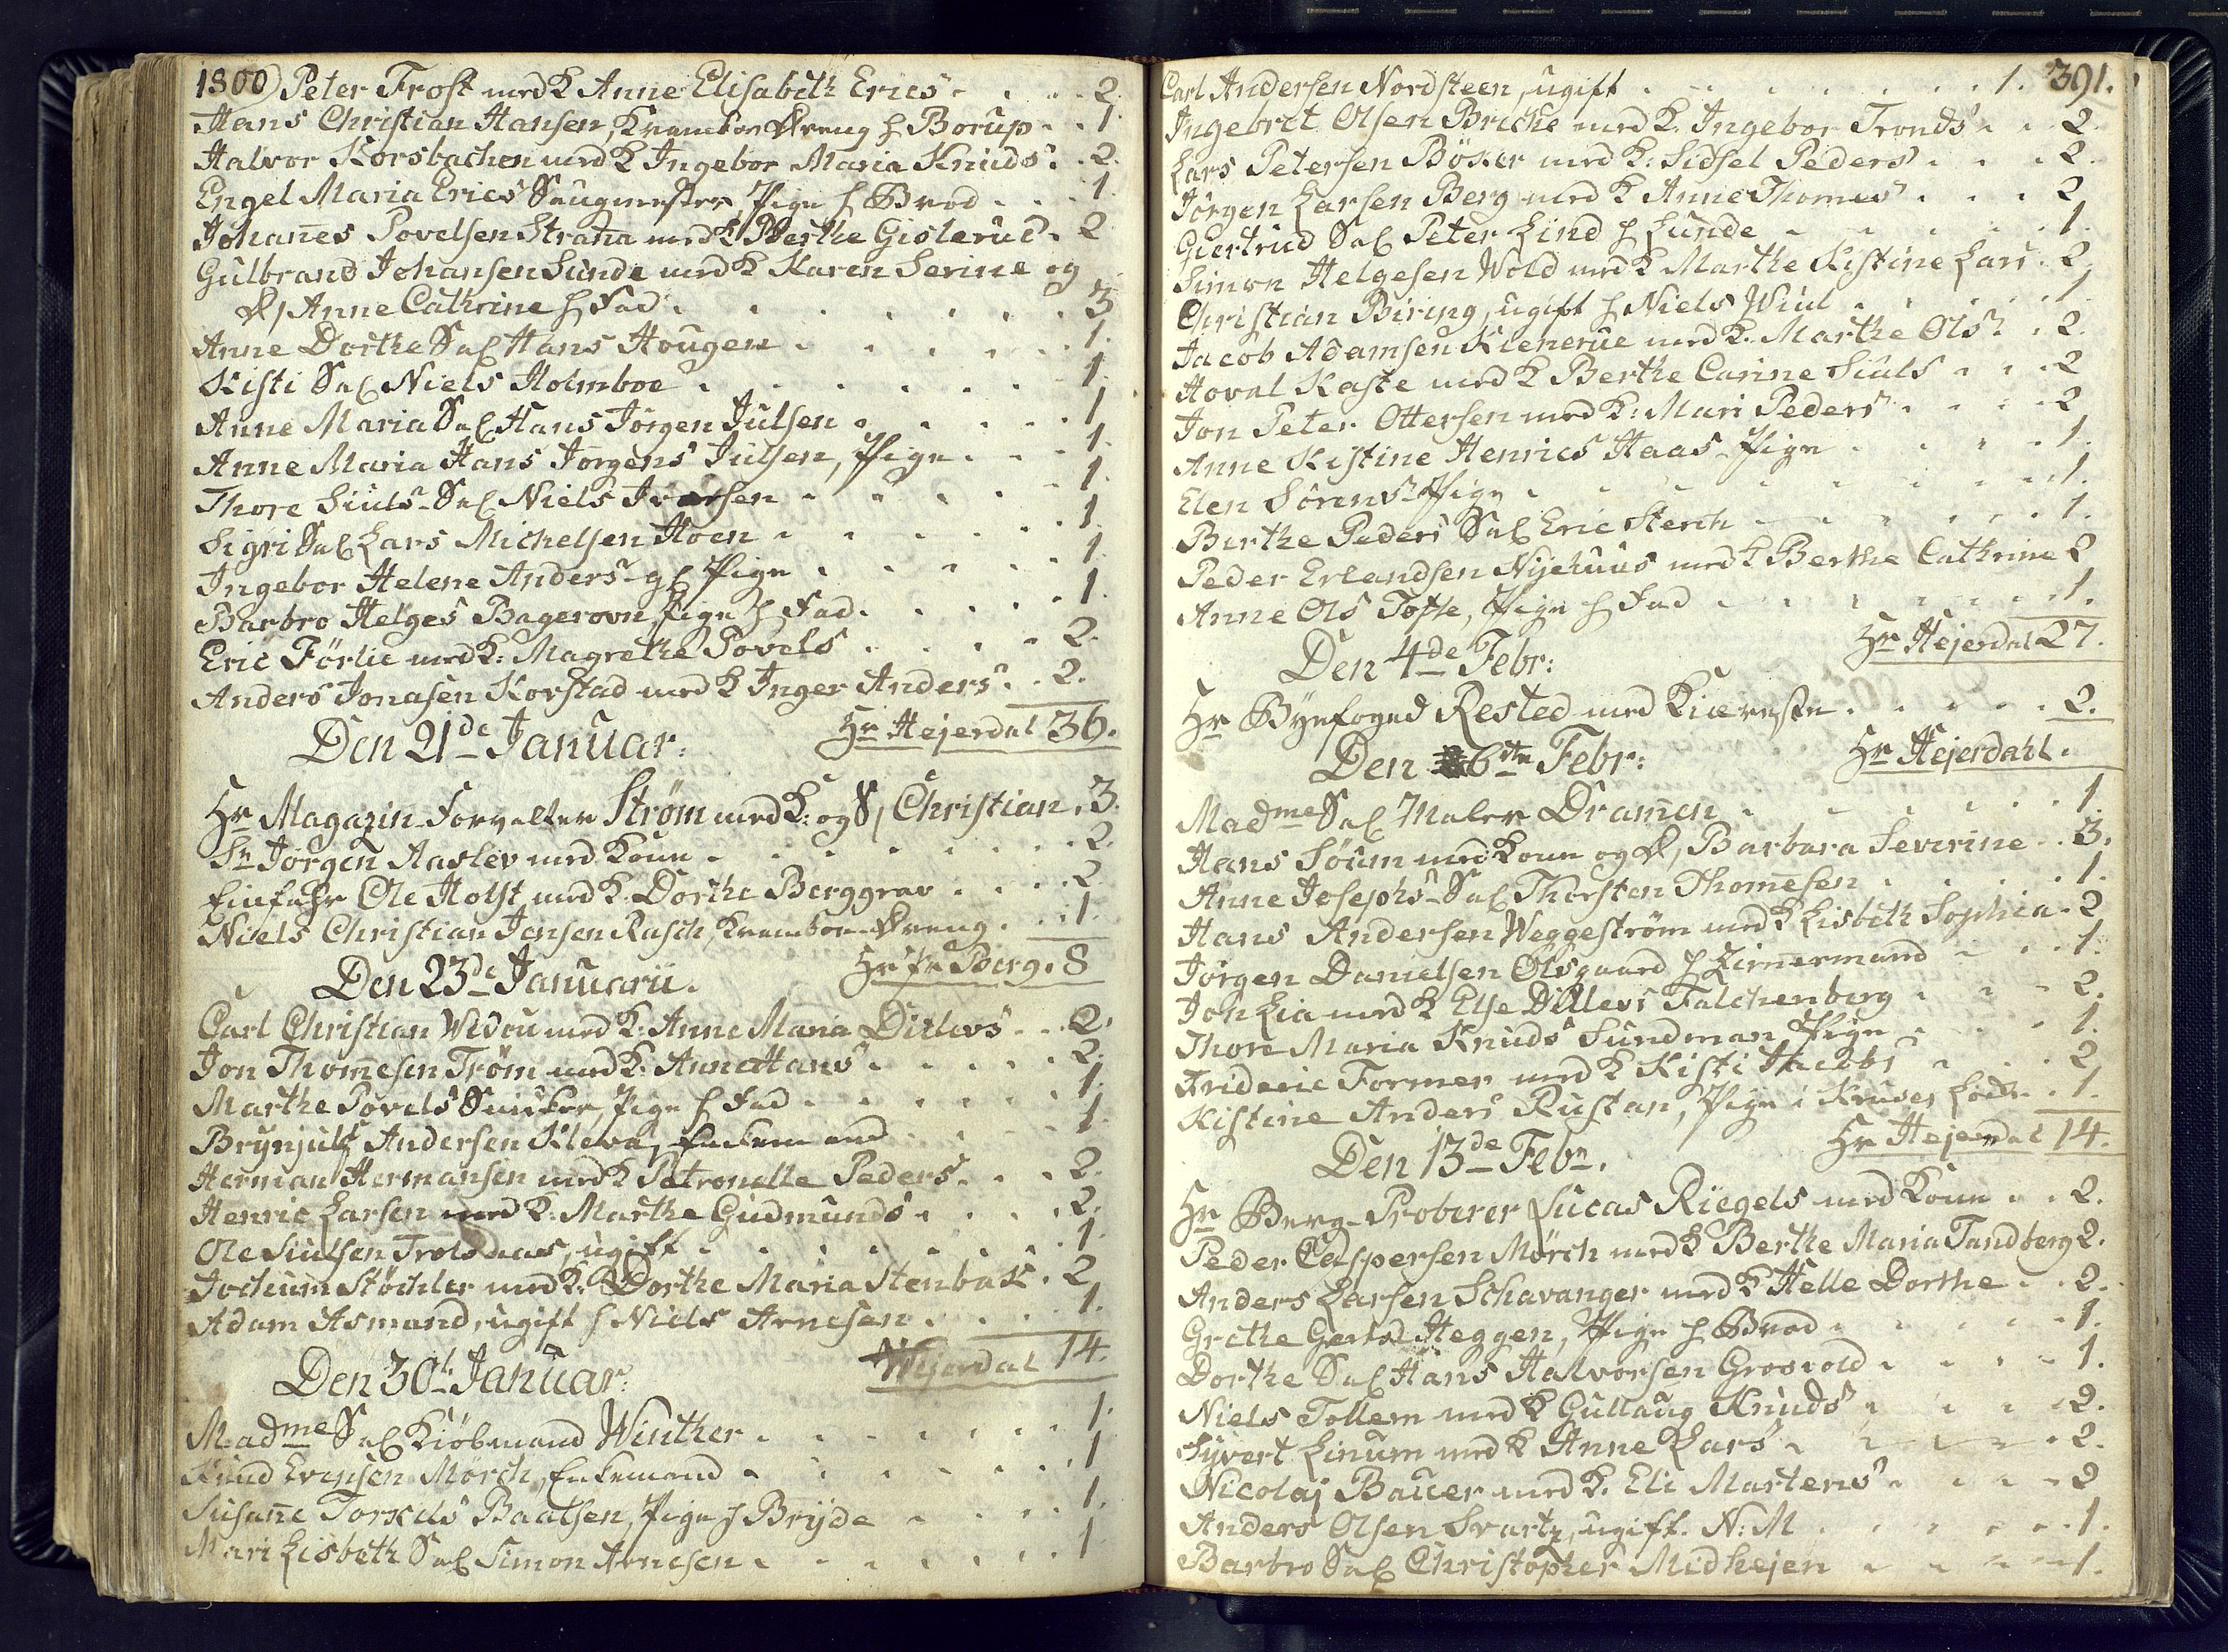 1800) Peter Frost med K Anne Elisabeth Erics . . . 2.
Hans Christian Hansen, Krambor Dreng h Borup . . 1.
Halvor Korsbachen med K Ingebor Maria Knuds . . 2.
Engel Maria Erics Saugmester Pige h Brod . . . 1.
Johanes Povelsen Strana med K Berthe Gislerud . 2
Gulbrand Johansen Sunde med K Karen Serine og
D, Anne Cathrine h Fad . . . . . . . 3
Anne Dorthe Sal Hans Hougen . . . . . . 1.
Kisti Sal Niels Holmboe . . . . . . . 1
Anne Maria Sal Hans Jörgen Julsen . . . . . 1
Anne Maria Hans Jörgens Julsen, Pige . . . 1.
Thore Siuls Sal Niels Iversen . . . . . 1.
Sigri Sal Lars Michelsen Hoen . . . . . . 1
Ingebor Helene Anders gl Pige . . . . . 1.
Barbro Helges Bagerovn, Pige h Fad . . . . . 1.
Eric Förlie med K: Magrethe Povels . . . . 2.
Anders Jonasen Korstad med K Inger Anders . . 2.
Hr Hejerdal 36.
Den 21de Januar:
Hr Magazin-Forvalter Ström med K: og S, Christian . 3.
Sr Jörgen Aaslev med Kone . . . . . . . . 2.
Einfahr Ole Holst med K. Dorthe Berggrav . . . . 2
Niels Christian Jensen Rasch, Krambor-Dreng . . . 1.
Hr Berg. 8
Den 23de Januarii.
Carl Christian Widou med K. Anne Maria Ditlevs . . 2.
Jon Thomesen Tröm med K. Anne Hans . . . . . 2.
Marthe Povels Snicker, Pige h Fad . . . . . . 1.
Brynjulf Andersen Kleva, Enkemand . . . . 1.
Herman Hermansen med K Petronelle Peders . . . 2.
Henric Larsen med K. Marthe Gudmunds . . . . 2.
Ole Siulsen Trolsaas, ugift . . . . . . . . 1.
Jochum Stöchler med K. Dorthe Maria Stenbak . 2
Adam Asmand, ugift h Niels Arnesen . . . . 1.
Hejerdal 14.
Den 30t Januar:
Madme Sal Kiöbmand Winther . . . . . . 1.
Knud Evensen Mörch, Enkemand . . . . . . 1
Susane Torkels Baatsen, Pige h Bryde . . . . 1.
Mari Lisbeth Sal Simon Arnesen . . . . . . 1
Carl Andersen Nordsteen, ugift . . . . . . . . 1. 391.
Ingebret Olsen Briche med K. Ingebor Tronds . . 2.
Lars Petersen Böker med K: Sidsel Peders . . . . 2.
Jörgen Larsen Berg med K Anne Thomes . . . 2
Giertrud Sal Peter Lind h Lunde . . . . . . 1.
Simon Helgesen Wold med K Marthe Kistine Lars . 2.
Christian Biring, ugift h Niels Wiul . . . . . . 1
Jacob Adamsen Kienerue med K. Marthe Ols . . 2.
Hoval Kaste med K Berthe Carine Siuls . . . 2
Jon Peter Ottersen med K: Mari Peders . . . . 2
Anne Kistine Henrics Haas Pige . . . . 1.
Elen Sörens Pige . . . . . . . . . . 1.
Berthe Peders Sal Eric Sterch . . . . . . 1.
Peder Erlandsen Nyehuus med K Berthe Cathrine 2
Anne Ols Tofte, Pige h Fad . . . . . . . 1.
Hr Hejerdal 27.
Den 4de Febr:
Hr Bÿefoged Rested med Kiereste . . . . . 2.
Den 6te Febr: Hr Hejerdahl.
Madme Sal Maler Dramen . . . . . . 1.
Hans Söum med Kone og D, Barbara Severine . . 3.
Anne Josephs Sal Thorsten Thomesen . . . . . 1.
Hans Andersen Weggeström med K Lisbeth Sophia . 2
Jörgen Danielsen Olsgaard h Zimermand . . . 1.
Jon Lia med K Else Ditlevs Falchenberg . . . 2.
Thore Maria Knuds Sundman Pige . . . . 1.
Frideric Former med K Kisti Jacobs . . . . 2
Kistine Anders Rustan, Pige i Kruses . . 1.
Hr Hejerdal 14.
Den 13de Febr.
Hr Berg-Proberer Lucas Riegels med Kone . . 2.
Peder Caspersen Mörch med K Berthe Maria Tandberg 2.
Anders Larsen Schavanger med K Helle Dorthe . . 2.
Grethe Gerts Heggen, Pige h Brod . . . . . 1.
Dorthe Sal Hans Halvorsen Grosvold . . . . 1.
Niels Tollem med K Gullaug Knuds . . . . 2.
Syvert Linum med K Anne Lars . . . . . 2.
Nicolaj Bauer med K. Eli Martens . . . . 2
Anders Olsen Svartz, ugift. N: M . . . . . 1.
Barbro Sal Christopher Midhejen . . . . . 1.